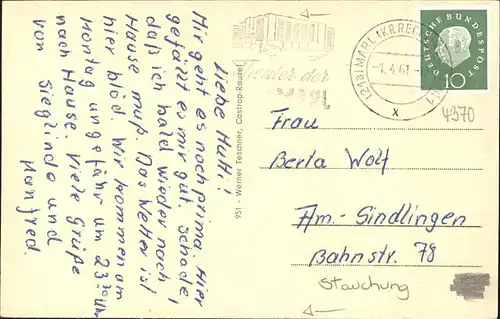 Liebe Mutti!
Mir geht es noch prima. Hier
gefällt es mir gut. Schade,
daß ich bald wieder nach
Hause muß. Das Wetter ist
hier blöd. Wir kommen am
Montag ungefähr um 23³⁰ Uhr
nach Hause. Viele Grüße
von Sieglinde und
Manfred.
951 - Werner Teschner, Castrop-Rauxel
Theater der
MARL
(21a) MARL (KR REC
-1.4.61-
x
DEUTSCHE BUNDESPOST
10
4370
Frau
Berta Wolf
Ffm.- Sindlingen
Bahnstr. 78
Stauchung